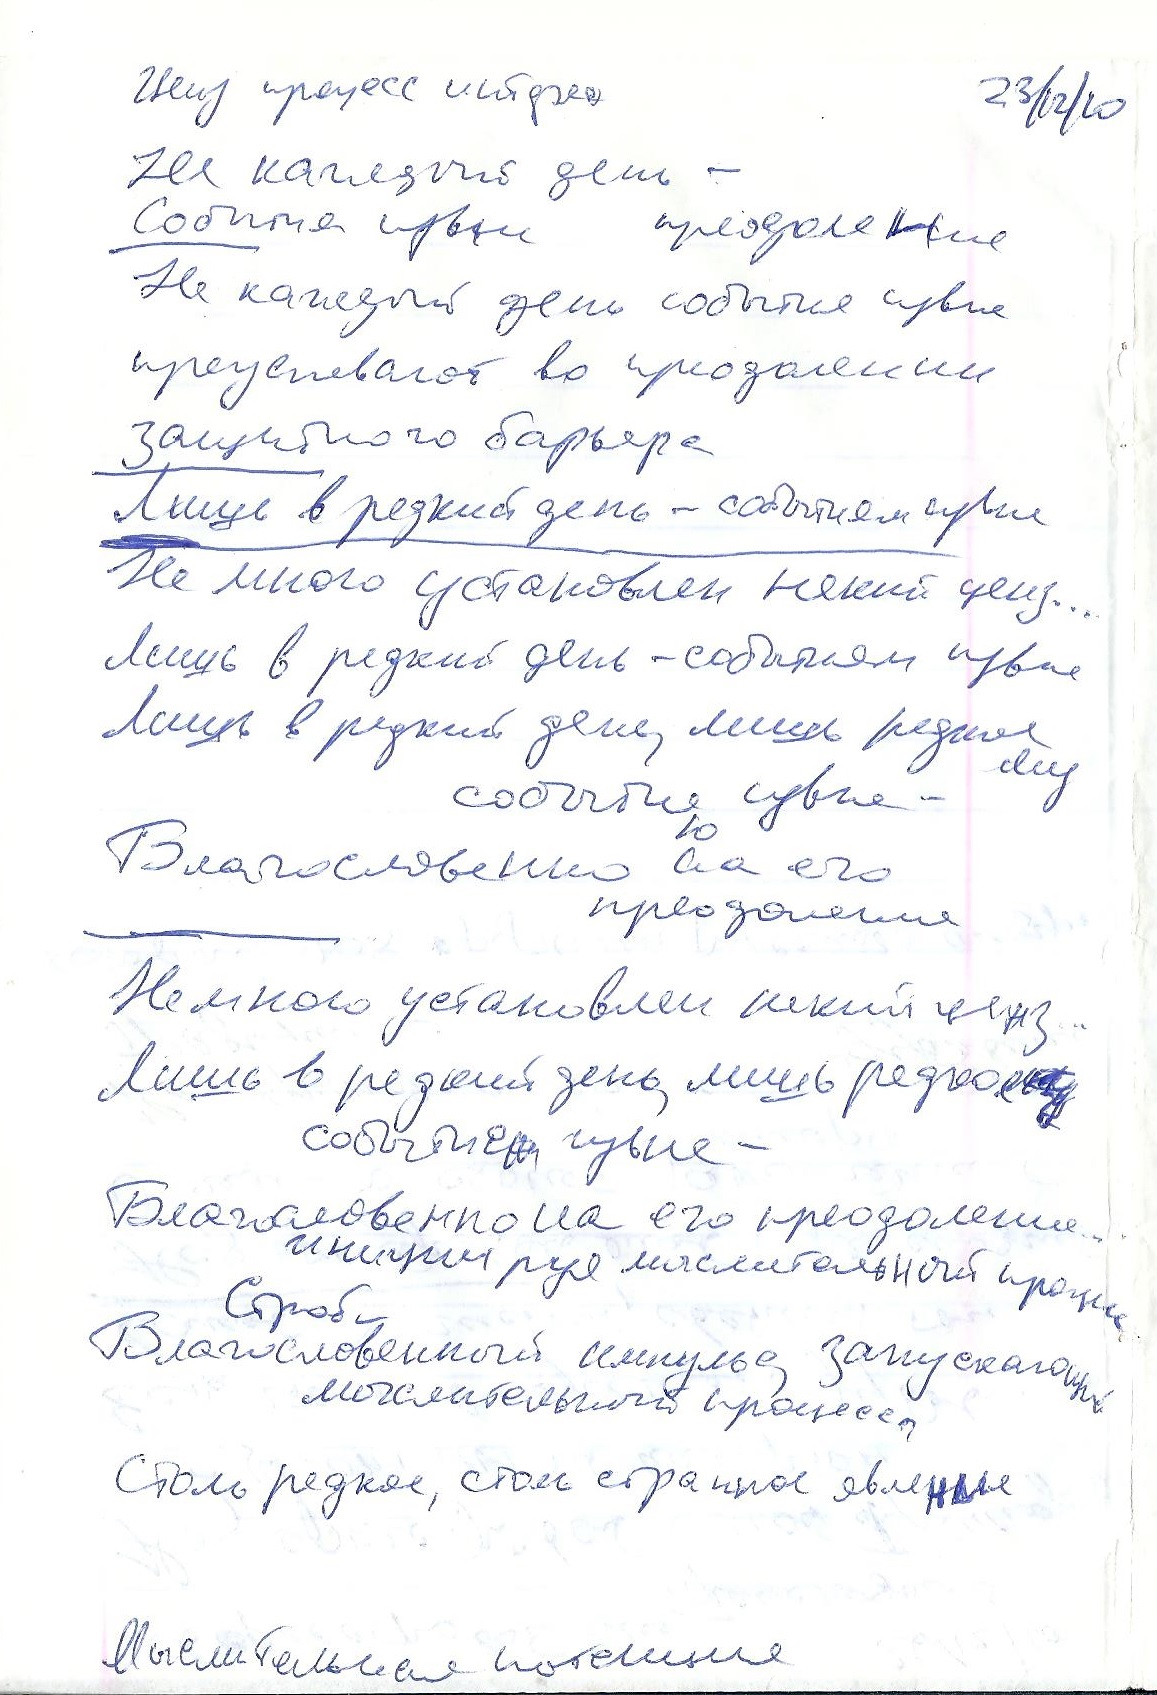 Ценз процесс 23/12/10
Не каждый день –
События извне преодоление
Не каждый день события извне
преуспевают во преодолении
защитного барьера
Лишь в редкий день – событием извне
Не много установлен некий ценз....
Лишь в редкий день – событием извне
Лишь в редкий день, лишь редкое
му
событие извне –
ю
Благословенно на его
преодоление
Немного установлен некий ценз...
Лишь в редкий день, лишь редкому
событием извне –
Благословенно на его преодоление....
инициируя мыслительный процесс
Строби
Благословенный импульс, запускающий
мыслительный процесс,
Столь редкое, столь странное явленье
Мыслительная потенция